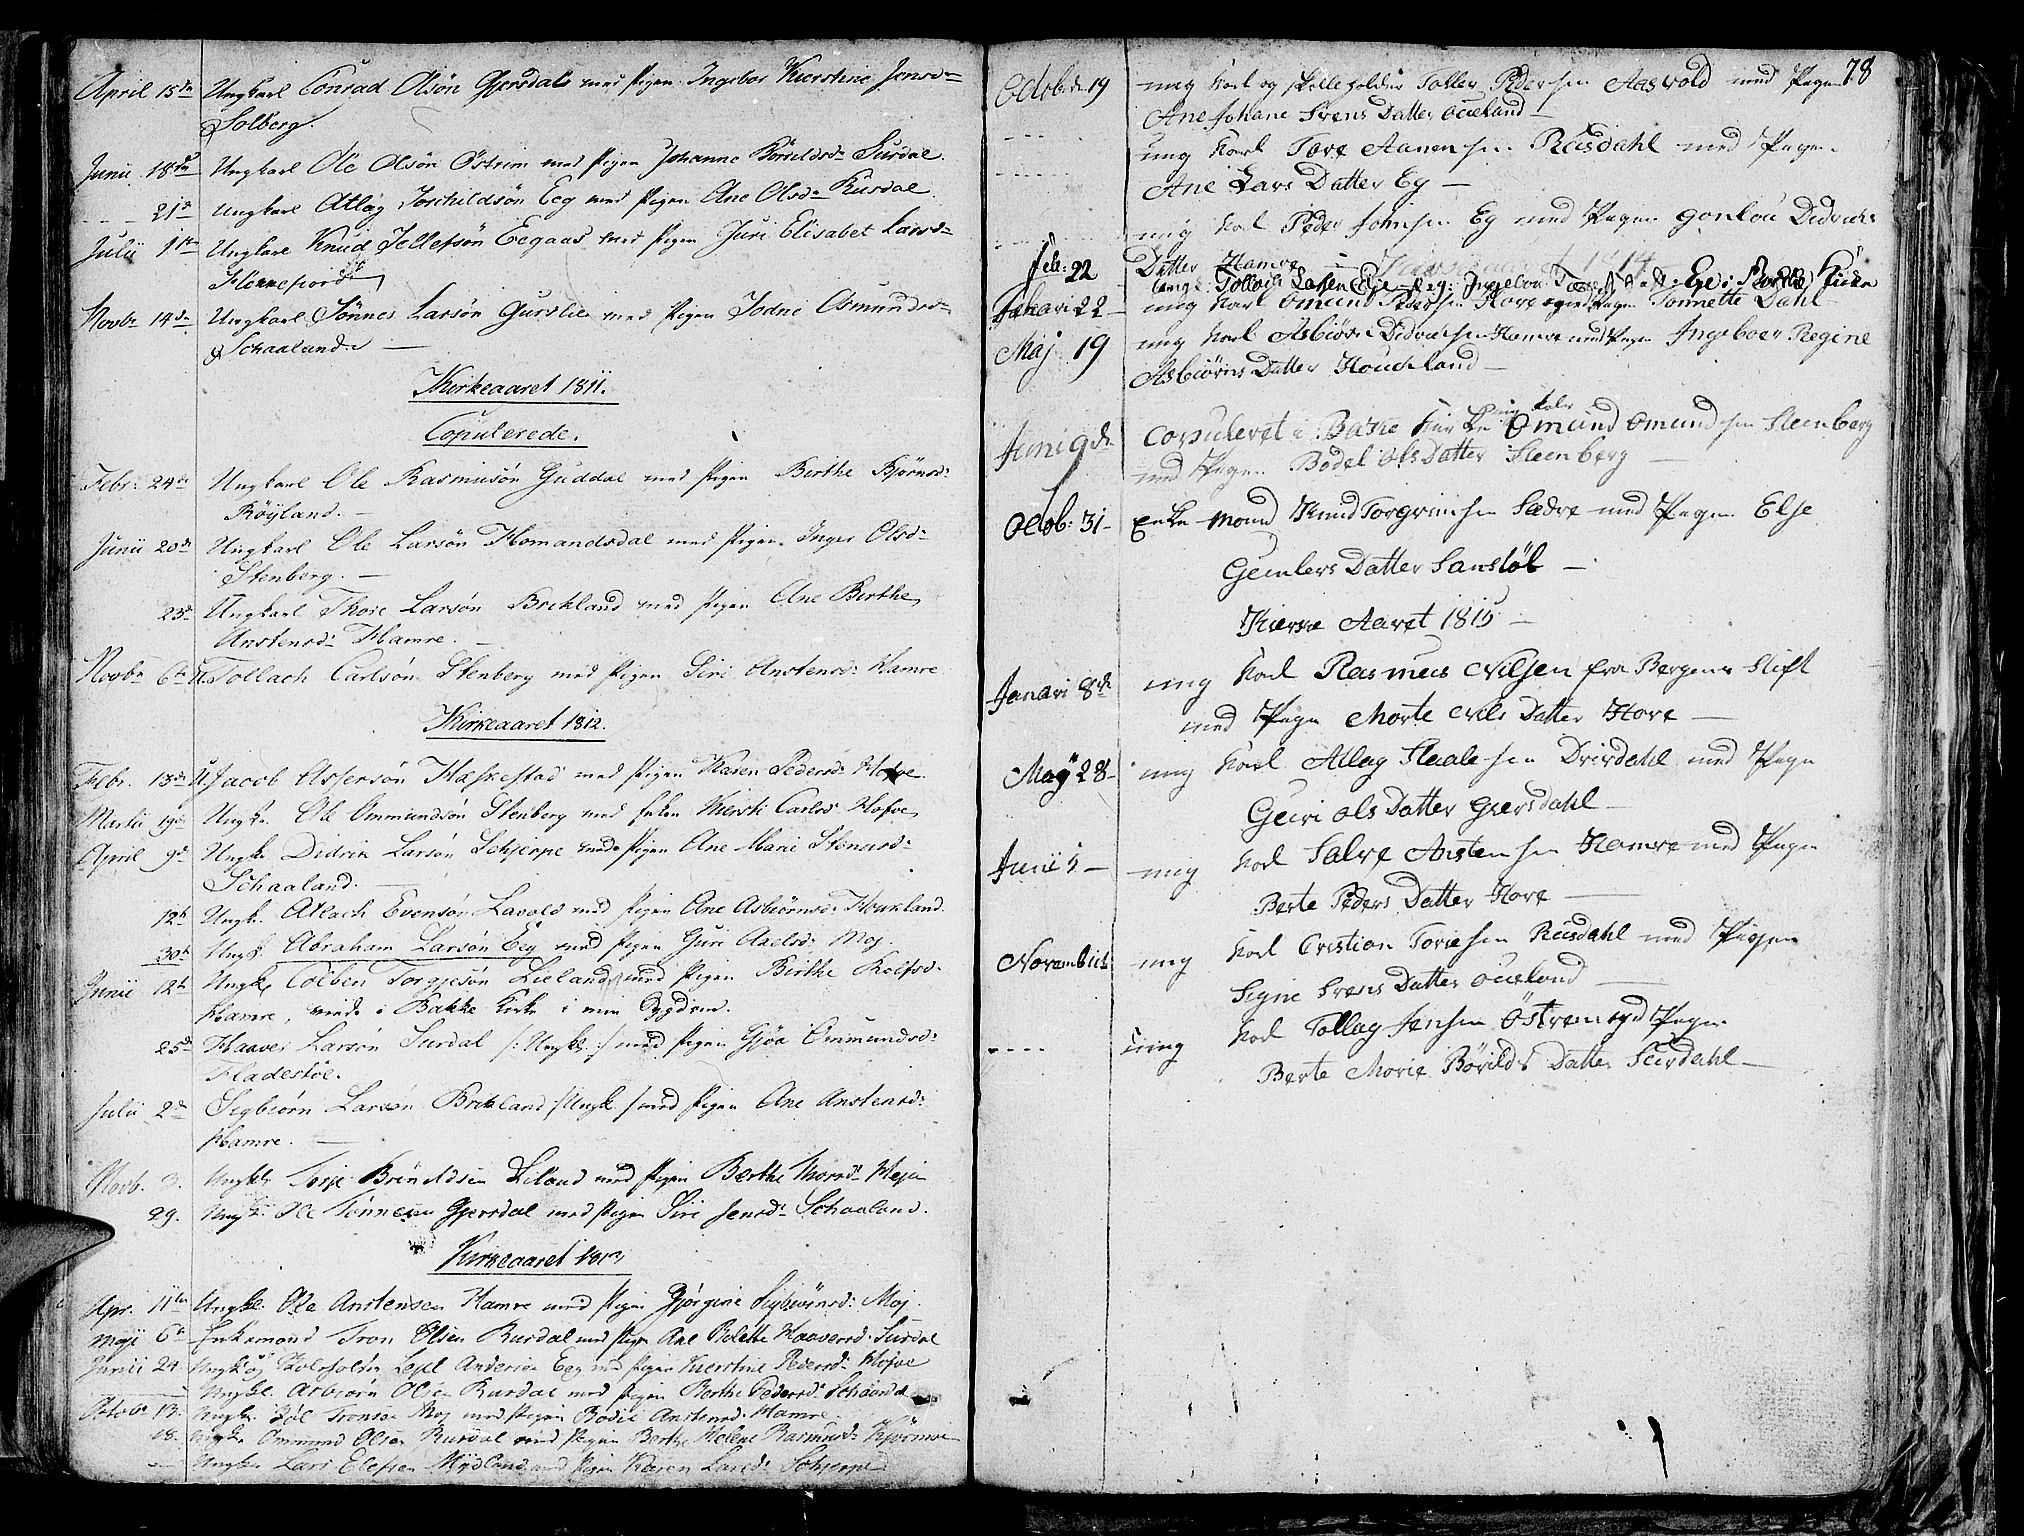 April 15de Ungkarl Conrad Olsön Gjersdal med Pigen Ingebor Kierstine Jensd:
Solberg.
Junii 18de Ungkarl Ole Olsön Östrem med Pigen Johanne Börildsd: Surdal.
21de Ungkarl Atlag Torchildsön Eeg med Pigen Ane Olsd: Rusdal
Julii 1ste Ungkarl Knud Tollefsön Eegaas med Pigen Juri Elisabet Larsd:
Hennefiord
Novbr 14de Ungkarl Tönnes Larsön Gurslie med Pigen Todne Osmundsd:
Schaaland. —
Kirkeaaret 1811.
Copulerede.
Febr: 24de Ungkarl Ole Rasmusön Guddal med Pigen Berthe Bjørnsd:
Röyland. —
Junii 20de Ungkarl Ole Larsön Homandsdal med Pigen Inger Olsd:
Stenberg. —
23de Ungkarl Thore Larsön Brekland med Pigen Ane Berthe
Anstensd: Hamre. —
Novbr 6te U. Tollach Carlsön Stenberg med Pigen Siri Anstensd: Hamre
Kirkeaaret 1812.
Febr. 13de U. Jacob Assersön Hæskestad med Pigen Karen Pedersd: Hofve.
Martii 19de Ungk. Ole Ommundsön Stenberg med Enken Kiersti Carlsd: Hofve
April 9de Ungk. Didrik Larsön Schjerpe med Pigen Ane Marie Stensrd:
Schaaland. —
12te Ungk. Atlach Evensön Lavold med Pigen Ane Asbiörnsd: Houkland.
30te Ungk. Abraham Larsön Eeg med Pigen Guri Axelsd: Moj.
Junii 12te Ungk. Colben Torgjesön Lieland med Pigen Birthe Rolfsd:
Hamre, viede i Bakke Kirke i min
25de Haaver Larsön Surdal /: Ungk: :/ med Pigen Gjöa Ommundsd:
Fladestöe.
Julii 2de Sigbiörn Larsen Brekland /: Ungk. :/ med Pigen Ane Anstensd:
Hamre. —
Novb. 3. Ungk. Terje Brönildsen Liland med Pigen Berthe Thorsd:
29. Ungk. Ole Tönnesen Gjersdal med Pigen Siri Jensd: Schaaland.
Kirkeaaret 1813
Apr. 11te Ungk. Ole Anstensen Hamre med Pigen Gjörgine Sigbiörnsd: Moj.
Maji 6te Enkemand Tron Olsen Rusdal med Pigen Ane Bolette Haaversd: Surdal
Junii 24. Ungk. og Lars Andersen Eeg med Pigen Kierstine Pedersd: Hofve
Ungk. Asbiörn Olsen Rusdal med Pigen Berthe Pedersd: Schaaland
Octob: 13. Ungk. Tronsen Moj med Pigen Bodil Anstensd: Hamre
18. Ungk. Ommund Olsen Rusdal med Pigen Berthe Helene Rasmusd:
— Ungk. Lars Elefsen Mydland med Pigen Karen Larsd: Schjerpe
78
Octob: d. 19 ung Karl og Skolleholder Toller Pedersen Aasvold med Pigen
Ane Johane Svens Datter Oueland —
---- ung Karl Tore Aanensen Rusdahl med Pigen
Ane Lars Datter Eg —
----- ung Karl Peder Johnsen Eg med Pigen Gonlou Didrichs
Datter Hamre — Kirkeaaret 1814
Feb: 22 Ungk: Tollach Larsen Eie Pig: Ingebor Datt: Ege i Kirke
Januari 22 — ung Karl Omund Pedersen Hove med Pigen Tonnette Dahl
Maj 19 ung Karl Asbiörn Didricsen Hamre med Pigen Ingeboer Regine
Asbiörns Datter Houckland —
Juni 9de Copuleret i Bakke Kirke ung Kalr Omund Omundsen Steenberg
med Pigen Bodel Ols Datter Steenberg —
Octob: 31 — Enke Mand Knud Torgrimsen Sædre med Pigen Else
Gemlers Datter Sanstöl —
Kierke Aaret 1815 —
Januari 8de ung Karl Rasmus Nilsen fra Bergens Stift
med Pigen Morte Nils Datter Hove —
May 28 — ung Karl Atlag Staalesen Drivdahl med Pigen
Geuri Ols Datter Giersdahl —
Junii 1 — ung Karl Salve Anstensen Hamre med Pigen
Berte Peders Datter Hove —
Novambris ung Karl Cristian Toriesen Rusdahl med Pigen
Signe Svens Datter Oueland —
---- ung Karl Tollag Jensen Östrem og Pigen
Berte Morie Börilds Datter Surdahl —